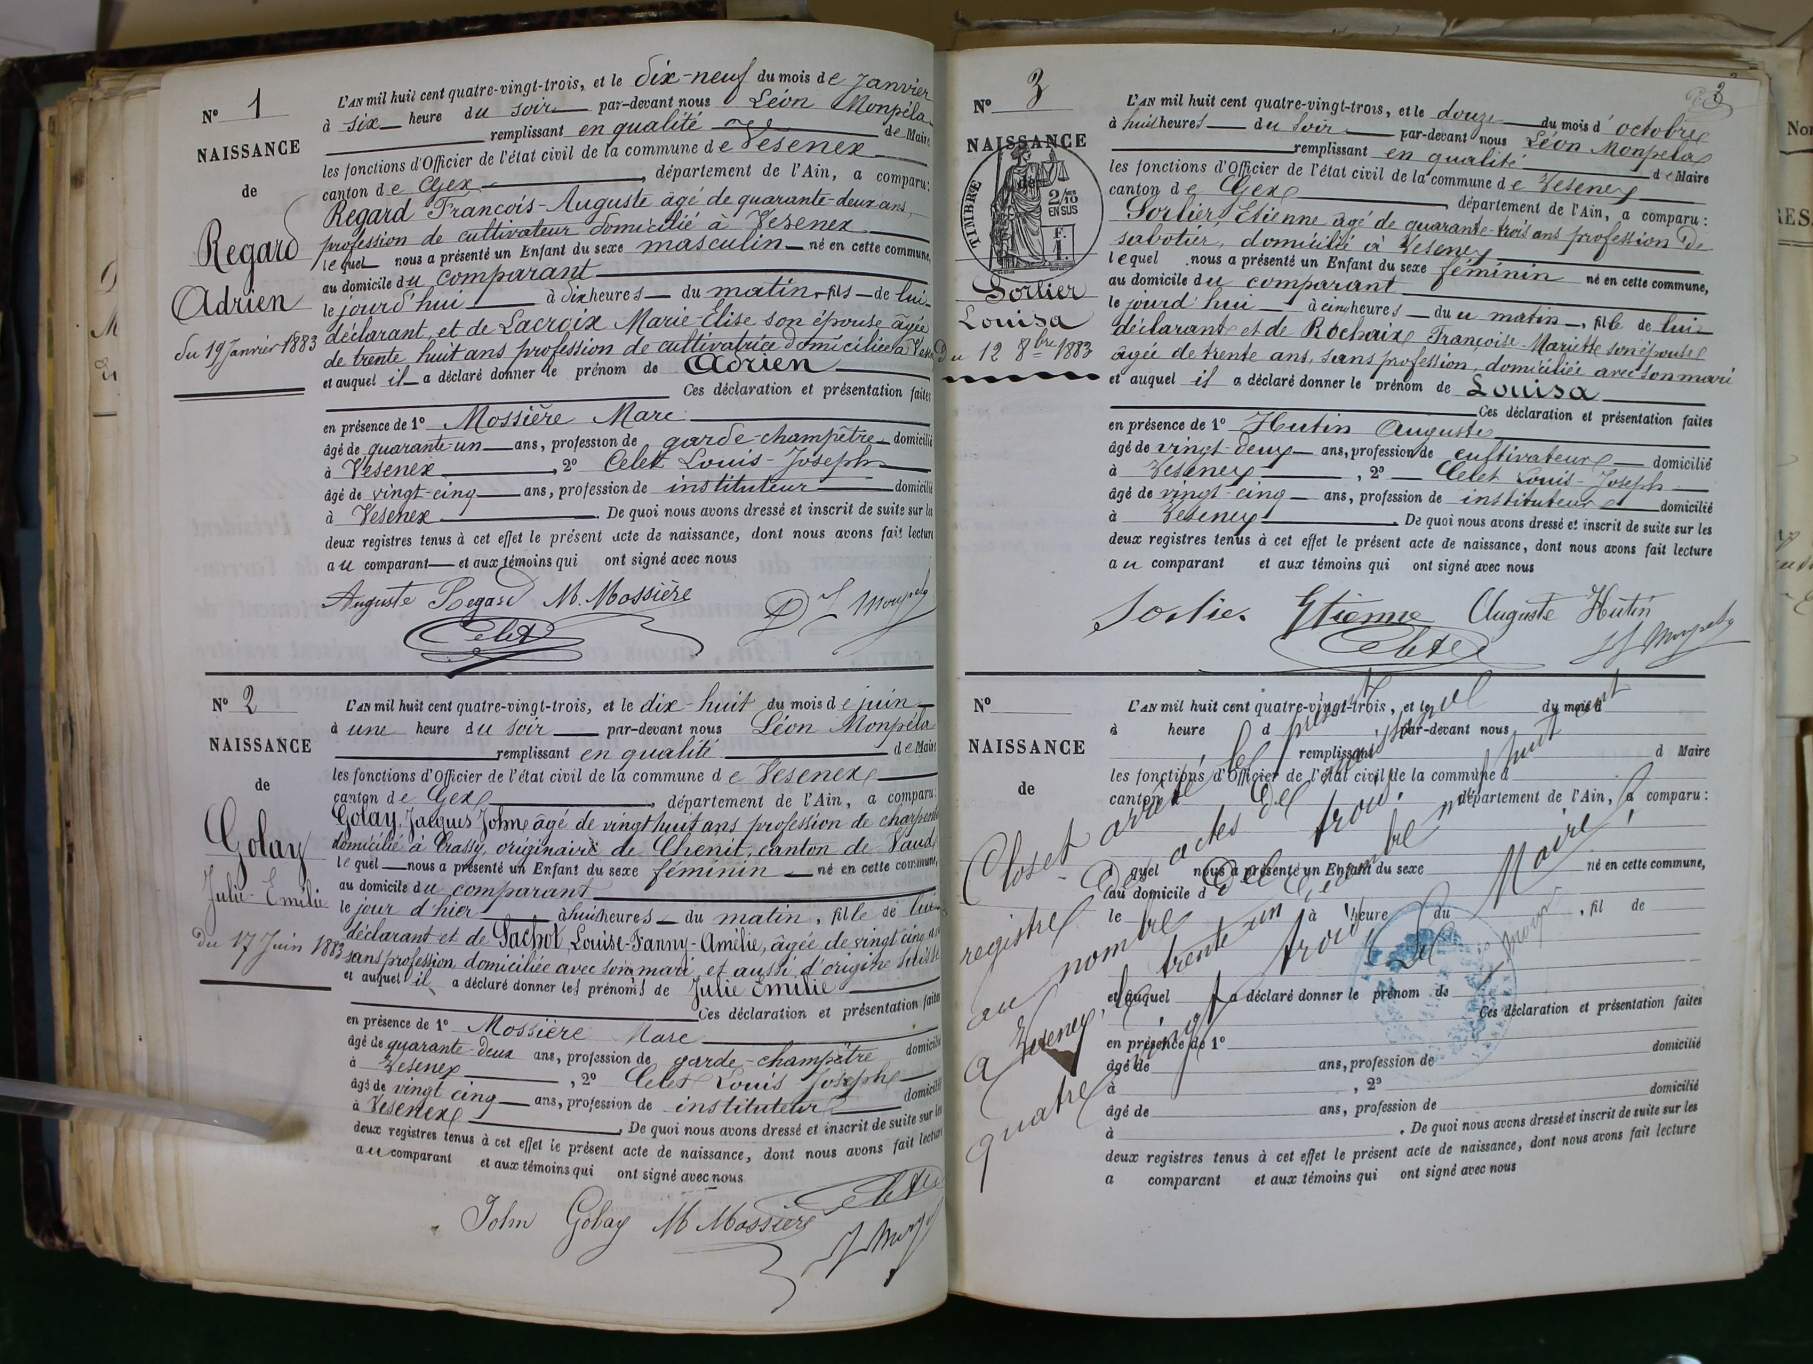 N° 1
NAISSANCE
de
Regard
Adrien
du 19 Janvier 1883
L'AN mil huit cent quatre-vingt-trois, et le dix-neuf du mois de Janvier
à six heure du soir par-devant nous Léon Monpéla
remplissant en qualité de Maire
les fonctions d'Officier de l'état civil de la commune de Vesenex
canton de Gex, département de l'Ain, a comparu:
Regard François-Auguste âgé de quarante-deux ans
profession de cultivateur domicilié à Vesenex
lequel nous a présenté un Enfant du sexe masculin né en cette commune,
au domicile du comparant
le jourd'hui à dix heures du matin, fils de lui
déclarant, et de Lacroix Marie Elise son épouse âgée
de trente huit ans profession de cultivatrice domiciliée à Vesenex
et auquel il a déclaré donner le prénom de Adrien
Ces déclaration et présentation faites
en présence de 1° Mossière Marc
âgé de quarante-un ans, profession de garde-champêtre domicilié
à Vesenex, 2° Celet Louis-Joseph
âgé de vingt-cinq ans, profession de instituteur domicilié
à Vesenex. De quoi nous avons dressé et inscrit de suite sur les
deux registres tenus à cet effet le présent acte de naissance, dont nous avons fait lecture
au comparant et aux témoins qui ont signé avec nous
Auguste Regard M. Mossière
Celet
N° 2
NAISSANCE
de
Golay
Julie-Emélie
du 17 Juin 1883
L'AN mil huit cent quatre-vingt-trois, et le dix-huit du mois de juin
à une heure du soir par-devant nous Léon Monpéla
remplissant en qualité de Maire
les fonctions d'Officier de l'état civil de la commune de Vesenex
canton de Gex, département de l'Ain, a comparu:
Golay, Jacques John âgé de vingt huit ans profession de charpentier
domicilié à Crassy, originaire de Chenit, canton de Vaud
lequel nous a présenté un Enfant du sexe féminin né en cette commune,
au domicile du comparant
le jour d'hier à huit heures du matin, fille de lui
déclarant et de Pachot, Louise-Fanny-Amélie, âgée de vingt cinq ans
sans profession domiciliée avec son mari, et aussi d'origine suisse
et auquel il a déclaré donner les prénoms de Julie Emélie
Ces déclaration et présentation faites
en présence de 1° Mossière Marc
âgé de quarante-deux ans, profession de garde-champêtre domicilié
à Vesenex, 2° Celet Louis Joseph
âgé de vingt cinq ans, profession de instituteur domicilié
à Vesenex. De quoi nous avons dressé et inscrit de suite sur les
deux registres tenus à cet effet le présent acte de naissance, dont nous avons fait lecture
au comparant et aux témoins qui ont signé avec nous
John Golay M Mossière
N° 3
NAISSANCE
de
TIMBRE
2/10 EN SUS
F. 1.
Sorlier
Louisa
Du 12 8bre 1883
L'AN mil huit cent quatre-vingt-trois, et le douze du mois d'octobre
à huit heures du soir par-devant nous Léon Monpéla
remplissant en qualité de Maire
les fonctions d'Officier de l'état civil de la commune de Vesenex
canton de Gex, département de l'Ain, a comparu:
Sorlier, Etienne âgé de quarante-trois ans profession de
sabotier, domicilié à Vesenex
lequel nous a présenté un Enfant du sexe féminin né en cette commune,
au domicile du comparant
le jourd'hui à cinq heures du matin, fille de lui
déclarant et de Rochaix Françoise-Mariette son épouse
âgée de trente ans, sans profession, domiciliée avec son mari
et auquel il a déclaré donner le prénom de Louisa
Ces déclaration et présentation faites
en présence de 1° Hutin Auguste
âgé de vingt-deux ans, profession de cultivateur domicilié
à Vesenex, 2° Celet Louis-Joseph
âgé de vingt-cinq ans, profession de instituteur domicilié
à Vesenex. De quoi nous avons dressé et inscrit de suite sur les
deux registres tenus à cet effet le présent acte de naissance, dont nous avons fait lecture
au comparant et aux témoins qui ont signé avec nous
Sorlier Etienne Auguste Hutin
N°
NAISSANCE
de
L'AN mil huit cent quatre-vingt-trois, et le du mois d
à heure d par-devant nous
remplissant d Maire
les fonctions d'Officier de l'état civil de la commune d
canton d département de l'Ain, a comparu:
quel nous a présenté un Enfant du sexe né en cette commune,
au domicile d
le à heure du , fil de
et auquel a déclaré donner le prénom de
Ces déclaration et présentation faites
en présence de 1°
âgé de ans, profession de domicilié
à , 2°
âgé de ans, profession de domicilié
à . De quoi nous avons dressé et inscrit de suite sur les
deux registres tenus à cet effet le présent acte de naissance, dont nous avons fait lecture
a comparant et aux témoins qui ont signé avec nous
Clos et arrêté le présent
registre des actes de naissance
au nombre de trois.
a Vesenex, le trente un décembre mil huit cent
quatre vingt trois, Le Maire,